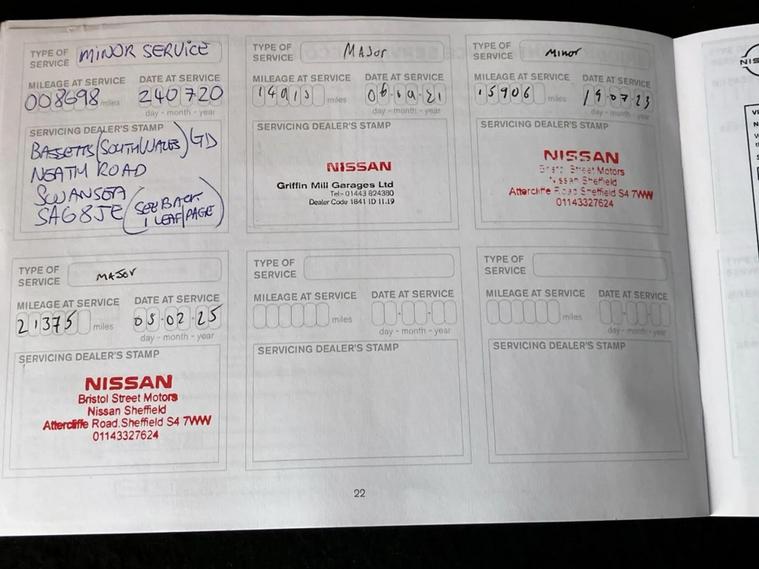 TYPE OF SERVICE MINOR SERVICE
MILEAGE AT SERVICE DATE AT SERVICE
008698 miles 240720
day - month - year
SERVICING DEALER'S STAMP
BASSETTS (SOUTH WALES) LTD
NEATH ROAD
SWANSEA
SA68JE (SEE BACK 1 LEAF/PAGE)
TYPE OF SERVICE MAJOR
MILEAGE AT SERVICE DATE AT SERVICE
miles
day - month - year
SERVICING DEALER'S STAMP
NISSAN
Griffin Mill Garages Ltd
Tel:- 01443 824380
Dealer Code 1841 ID 11.19
TYPE OF SERVICE Minor
MILEAGE AT SERVICE DATE AT SERVICE
15906 miles 19·07·23
day - month - year
SERVICING DEALER'S STAMP
NISSAN
Bristol Street Motors
Nissan Sheffield
Attercliffe Road Sheffield S4 7WW
01143327624
TYPE OF SERVICE MAJOR
MILEAGE AT SERVICE DATE AT SERVICE
21375 miles 05·02·25
day - month - year
SERVICING DEALER'S STAMP
NISSAN
Bristol Street Motors
Nissan Sheffield
Attercliffe Road,Sheffield S4 7WW
01143327624
TYPE OF SERVICE
MILEAGE AT SERVICE DATE AT SERVICE
miles
day - month - year
SERVICING DEALER'S STAMP
TYPE OF SERVICE
MILEAGE AT SERVICE DATE AT SERVICE
miles
day - month - year
SERVICING DEALER'S STAMP
22